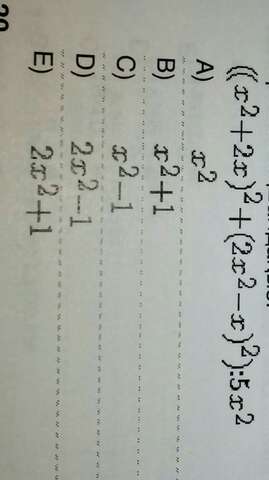 ((x²+2x)²+(2x²-x)²):5x²
A) x²
B) x²+1
C) x²-1
D) 2x²-1
E) 2x²+1